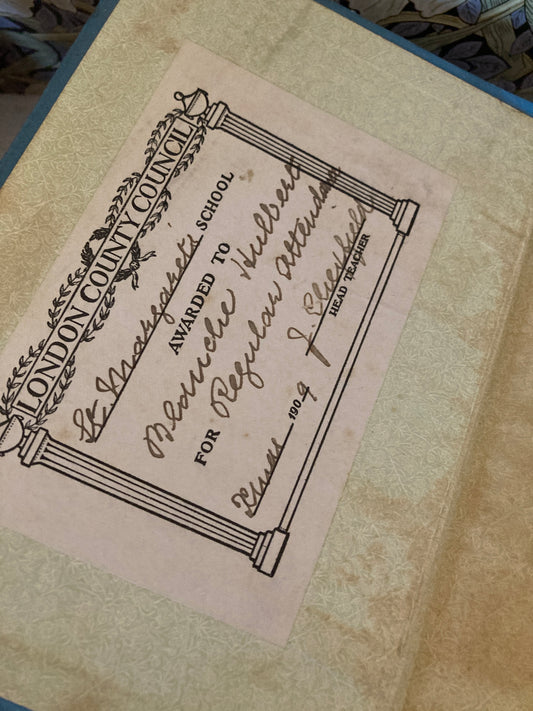 LONDON COUNTY COUNCIL
St Margaret's SCHOOL
AWARDED TO
Blanche Hulbert
FOR Regular attendance
Xmas 1909 J. Chesfield
HEAD TEACHER